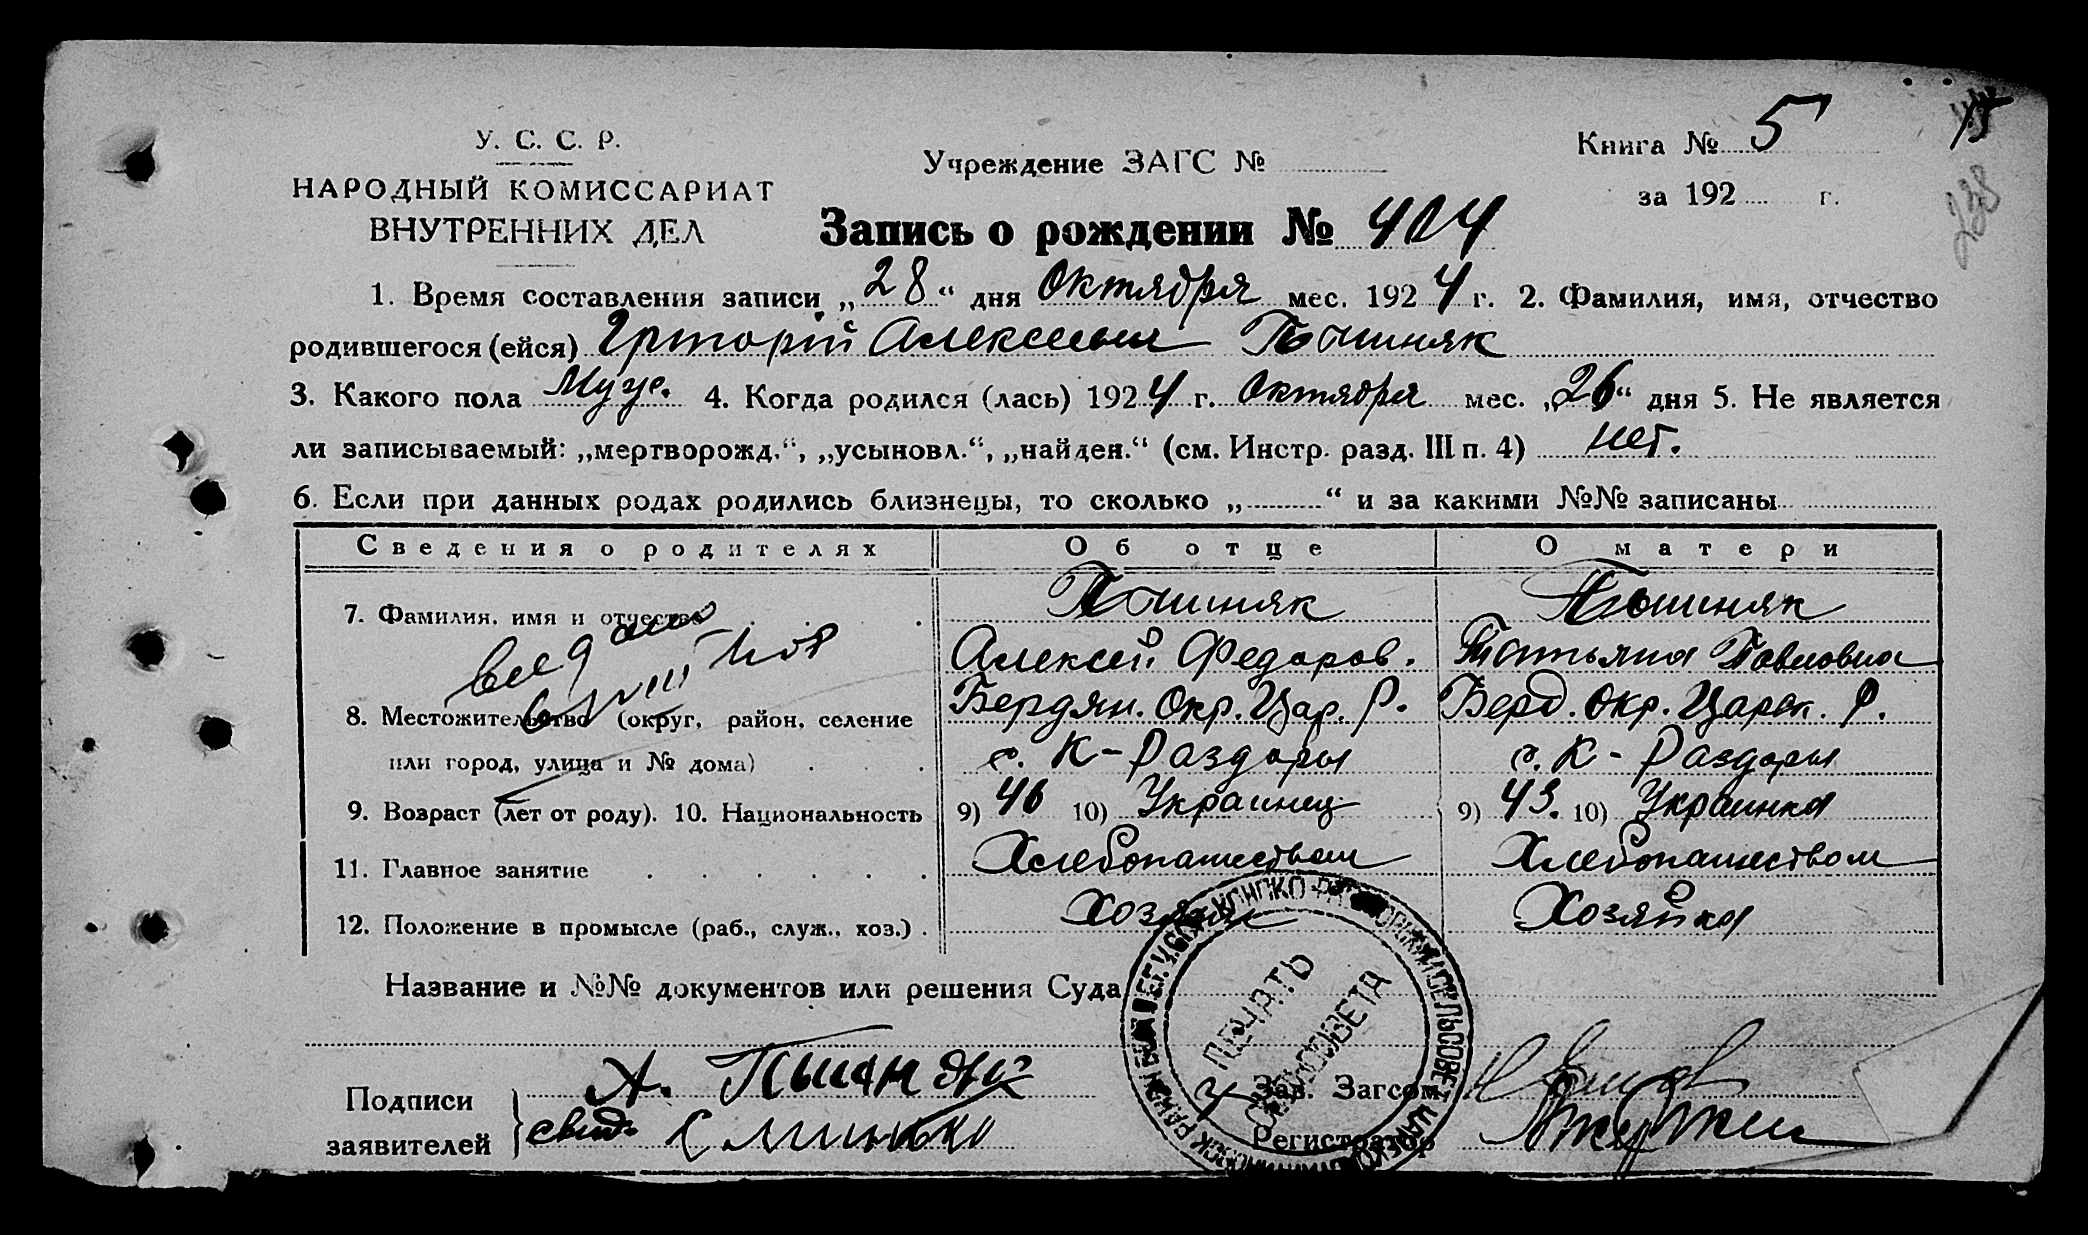 У. С. С. Р.
НАРОДНЫЙ КОМИССАРИАТ
ВНУТРЕННИХ ДЕЛ
Учреждение ЗАГС №
Книга № 5
за 192 г.
Запись о рождении № 404
1. Время составления записи „28“ дня Октября мес. 1924 г. 2. Фамилия, имя, отчество
родившегося (ейся) Григорій Алексеевич
3. Какого пола Муж. 4. Когда родился (лась) 1924 г. Октября мес. „26“ дня 5. Не является
ли записываемый: „мертворожд.“, „усыновл.“, „найден.“ (см. Инстр. разд. III п. 4) нет.
6. Если при данных родах родились близнецы, то сколько „ “ и за какими №№ записаны
Сведения о родителях Об отце О матери
7. Фамилия, имя и отчество
Алексей Федоров. Татьяна Павловна
8. Местожительство (округ, район, селение Бердян. Окр. Цар. Р. Берд. Окр. Царек. Р.
или город, улица и № дома) с. К-Раздоры с. К-Раздоры
9. Возраст (лет от роду). 10. Национальность 9) 46 10) Украинец 9) 43. 10) Украинка
11. Главное занятие Хлебопашеством Хлебопашеством
12. Положение в промысле (раб., служ., хоз.) Хозяин Хозяйка
Название и №№ документов или решения Суда
ПЕЧАТЬ
СЕЛЬСОВЕТА
Подписи
заявителей
А.
свид.
Зав. Загсом
Регистратор